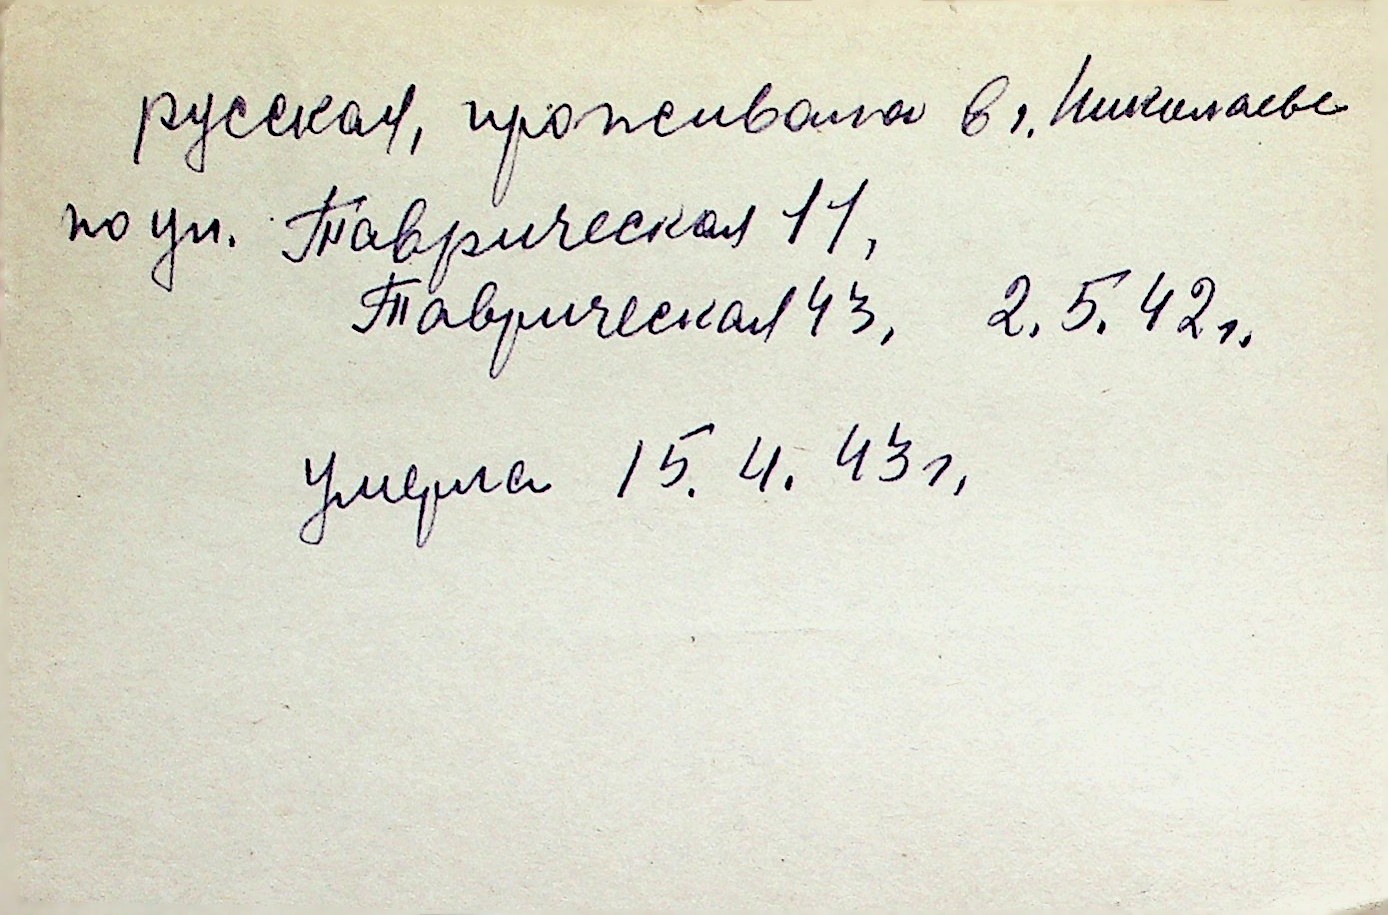 русская, проживала в г. Николаеве
по ул. Таврическая 11,
Таврическая 43, 2.5.42г.
умерла 15.4.43г,